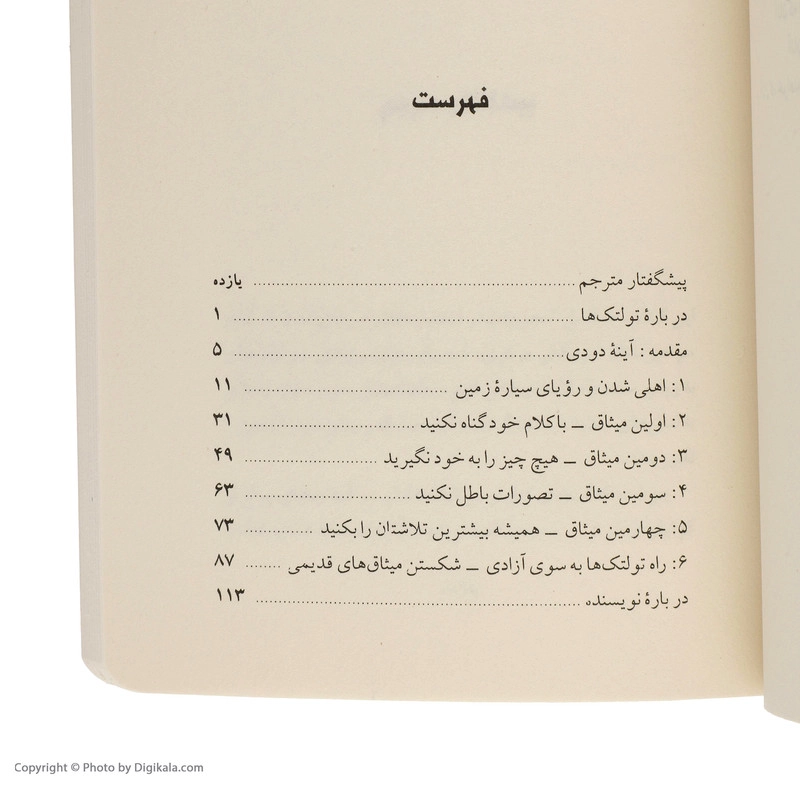 فهرست
پیشگفتار مترجم ........ یازده
در بارهٔ تولتک‌ها ........ ۱
مقدمه : آینهٔ دودی ........ ۵
۱: اهلی شدن و رؤیای سیارهٔ زمین ........ ۱۱
۲: اولین میثاق ــ با کلام خود گناه نکنید ........ ۳۱
۳: دومین میثاق ــ هیچ چیز را به خود نگیرید ........ ۴۹
۴: سومین میثاق ــ تصورات باطل نکنید ........ ۶۳
۵: چهارمین میثاق ــ همیشه بیشترین تلاشتان را بکنید ........ ۷۳
۶: راه تولتک‌ها به سوی آزادی ــ شکستن میثاق‌های قدیمی ........ ۸۷
در بارهٔ نویسنده ........ ۱۱۳
Copyright © Photo by Digikala.com